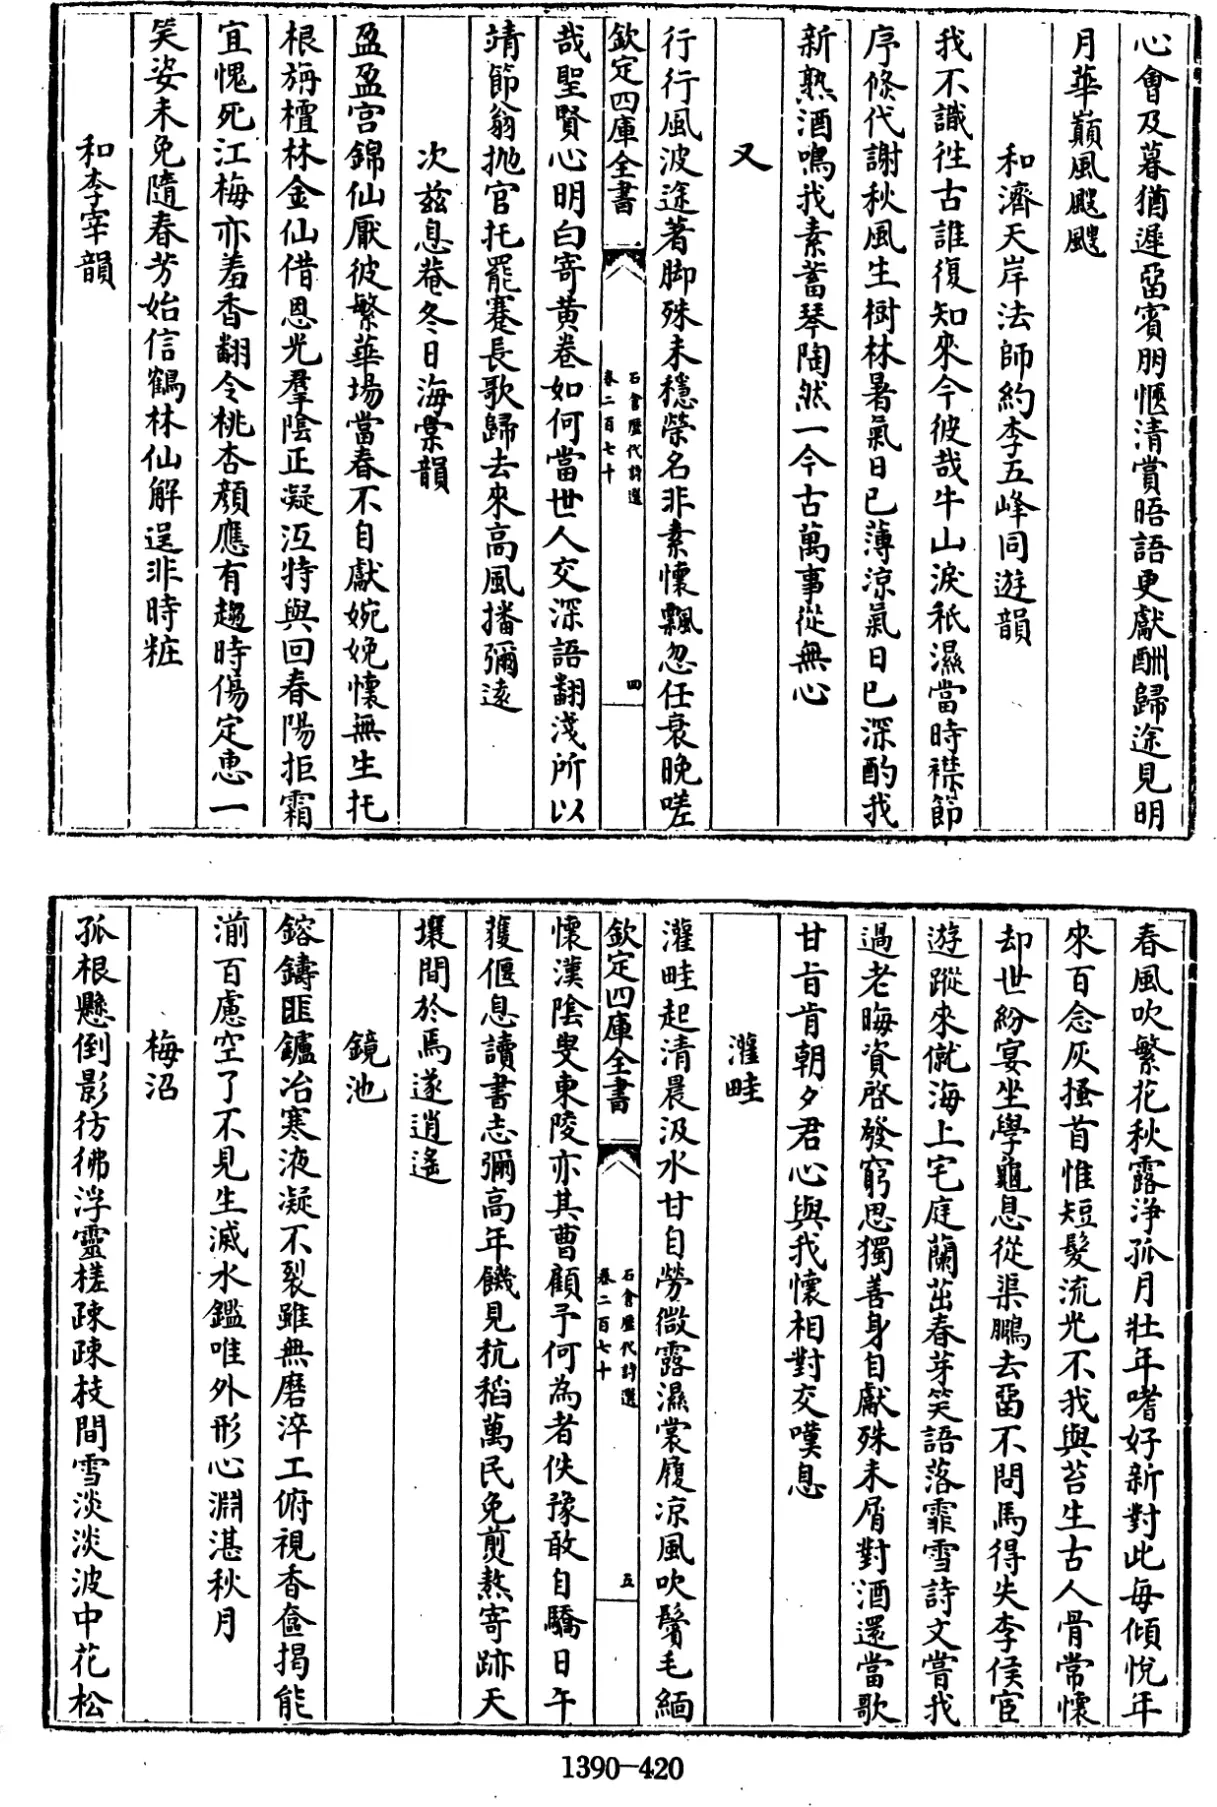 心會及暮猶遲留賓朋愜清賞晤語更獻酬歸途見明
月華巔風颼颼
和濟天岸法師約李五峰同遊韻
我不識徃古誰復知來今彼哉牛山淚祇濕當時襟節
序倐代謝秋風生樹林暑氣日已薄涼氣日已深酌我
新熟酒鳴我素蓄琴陶然一今古萬事從無心
又
行行風波途著脚殊未穩榮名非素懷飄忽任衰晚嗟
欽定四庫全書
石倉歷代詩選
卷二百七十
四
哉聖賢心明白寄黄卷如何當世人交深語翻淺所以
靖節翁抛官托罷蹇長歌歸去來高風播彌遠
次兹息菴冬日海棠韻
盈盈宫錦仙厭彼繁華場當春不自獻婉娩懷無生托
根旃檀林金仙借恩光羣陰正凝沍特與回春陽拒霜
宜愧死江梅亦羞香翻令桃杏顔應有趨時傷定惠一
笑姿未免隨春芳始信鶴林仙解逞非時粧
和李宰韻
春風吹繁花秋露浄孤月壯年嗜好新對此每傾悅年
來百念灰搔首惟短髮流光不我與苔生古人骨常懷
却世紛宴坐學龜息從渠鵬去留不問馬得失李侯宦
遊蹤來僦海上宅庭蘭茁春芽笑語落霏雪詩文嘗我
過老晦資啓發窮思獨善身自獻殊未屑對酒還當歌
甘旨肯朝夕君心與我懷相對交嘆息
灌畦
灌畦起清晨汲水甘自勞微露濕裳履凉風吹鬢毛緬
欽定四庫全書
石倉歷代詩選
卷二百七十
五
懷漢陰叟東陵亦其曹顧予何為者佚豫敢自驕日午
獲偃息讀書志彌高年饑見秔稻萬民免煎熬寄跡天
壤間於焉遂逍遙
鏡池
鎔鑄匪鑪冶寒液凝不裂雖無磨淬工俯視香奩揭能
湔百慮空了不見生滅水鑑唯外形心淵湛秋月
梅沼
孤根懸倒影彷彿浮靈槎疎疎枝間雪淡淡波中花松
1390-420